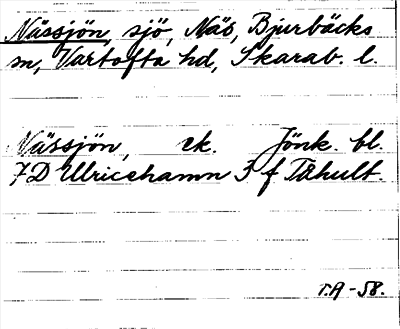 Nässjön, sjö, Näs, Bjurbäcks
sn, Vartofta hd, Skarab. l.
Nässjön, ek. Jönk. bl.
7D Ulricehamn 3 f Tåhult.
T.A -58.